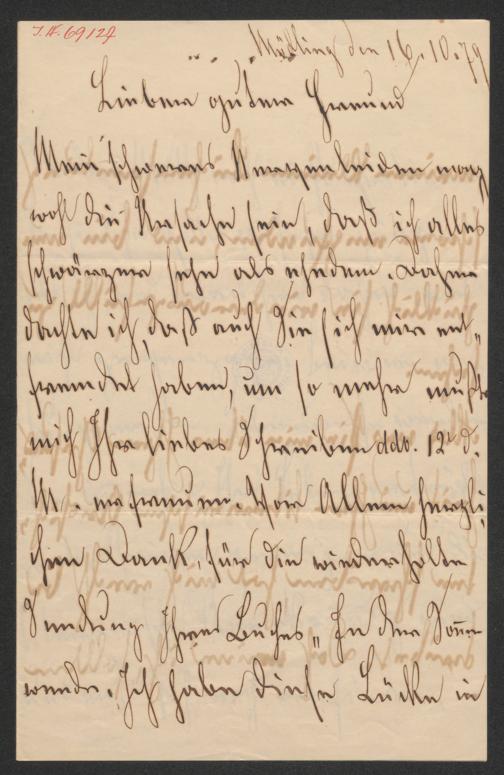 I.N. 69127
Mödling den 16/10.79
Lieber guter Freund
Mein schweres Nervenleiden mag
wohl die Ursache sein, daß ich alles
schwärzer sehe als ehedem. Daher
dachte ich, daß auch Sie sich mir ent„
fremdet haben, um so mehr mußte
mich Ihr liebes Schreiben ddo. 12t d.
M. erfreuen. Vor Allem herzli„
chen Dank, für die wiederholte
Sendung Ihres Buches „In der Sonn
wende. Ich habe diese Lücke in